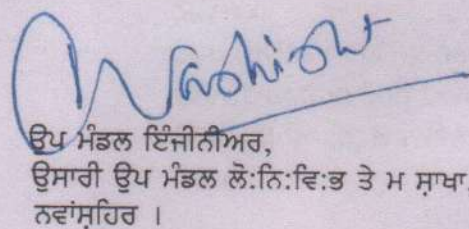 ਉਪ ਮੰਡਲ ਇੰਜੀਨੀਅਰ,
ਉਸਾਰੀ ਉਪ ਮੰਡਲ ਲੋ:ਨਿ:ਵਿ:ਭ ਤੇ ਮ ਸ਼ਾਖਾ
ਨਵਾਂਸ਼ਹਿਰ ।